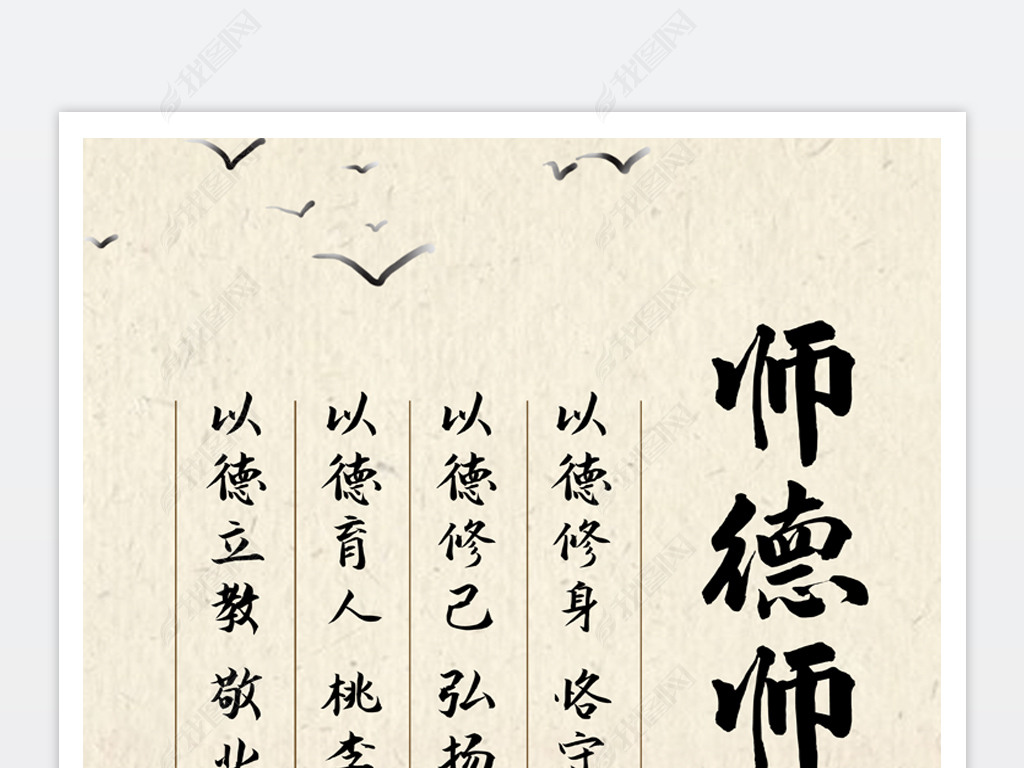 师德师
以德修身 恪守
以德修己 弘扬
以德育人 桃李
以德立教 敬业
我图网